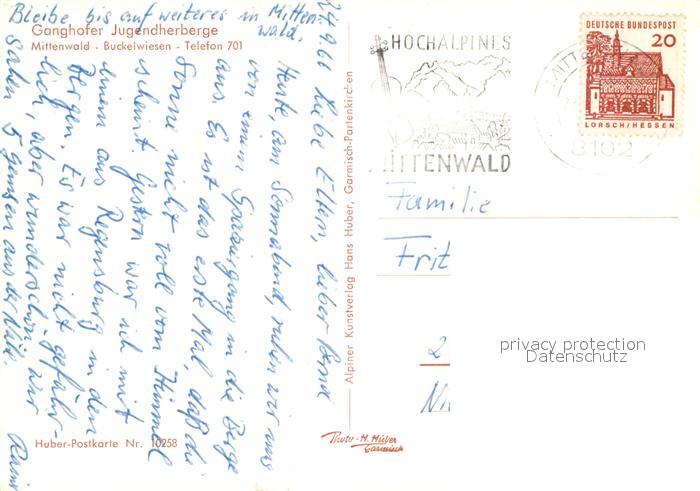 Bleibe bis auf weiteres in Mitten-
wald.
Ganghofer Jugendherberge
Mittenwald - Buckelwiesen - Telefon 701
24.9.66
Liebe Eltern, lieber Bernd
Heute, am Sonnabend, ruhen wir uns
von einem Spaziergang in die Berge
aus. Es ist das erste Mal, daß die
Sonne nicht voll vom Himmel
scheint. Gestern war ich mit
einem aus Regensburg in den
Bergen. Es war nicht gefähr-
lich, aber wunderschön. Wir
sahen 5 Gemsen aus der Nähe.
Huber-Postkarte Nr. 10258
Alpiner Kunstverlag Hans Huber, Garmisch-Partenkirchen
Photo-H. Huber
Garmisch
HOCHALPINES
MITTENWALD
8102
DEUTSCHE BUNDESPOST
20
LORSCH/HESSEN
Familie
Frit
2
privacy protection
Datenschutz